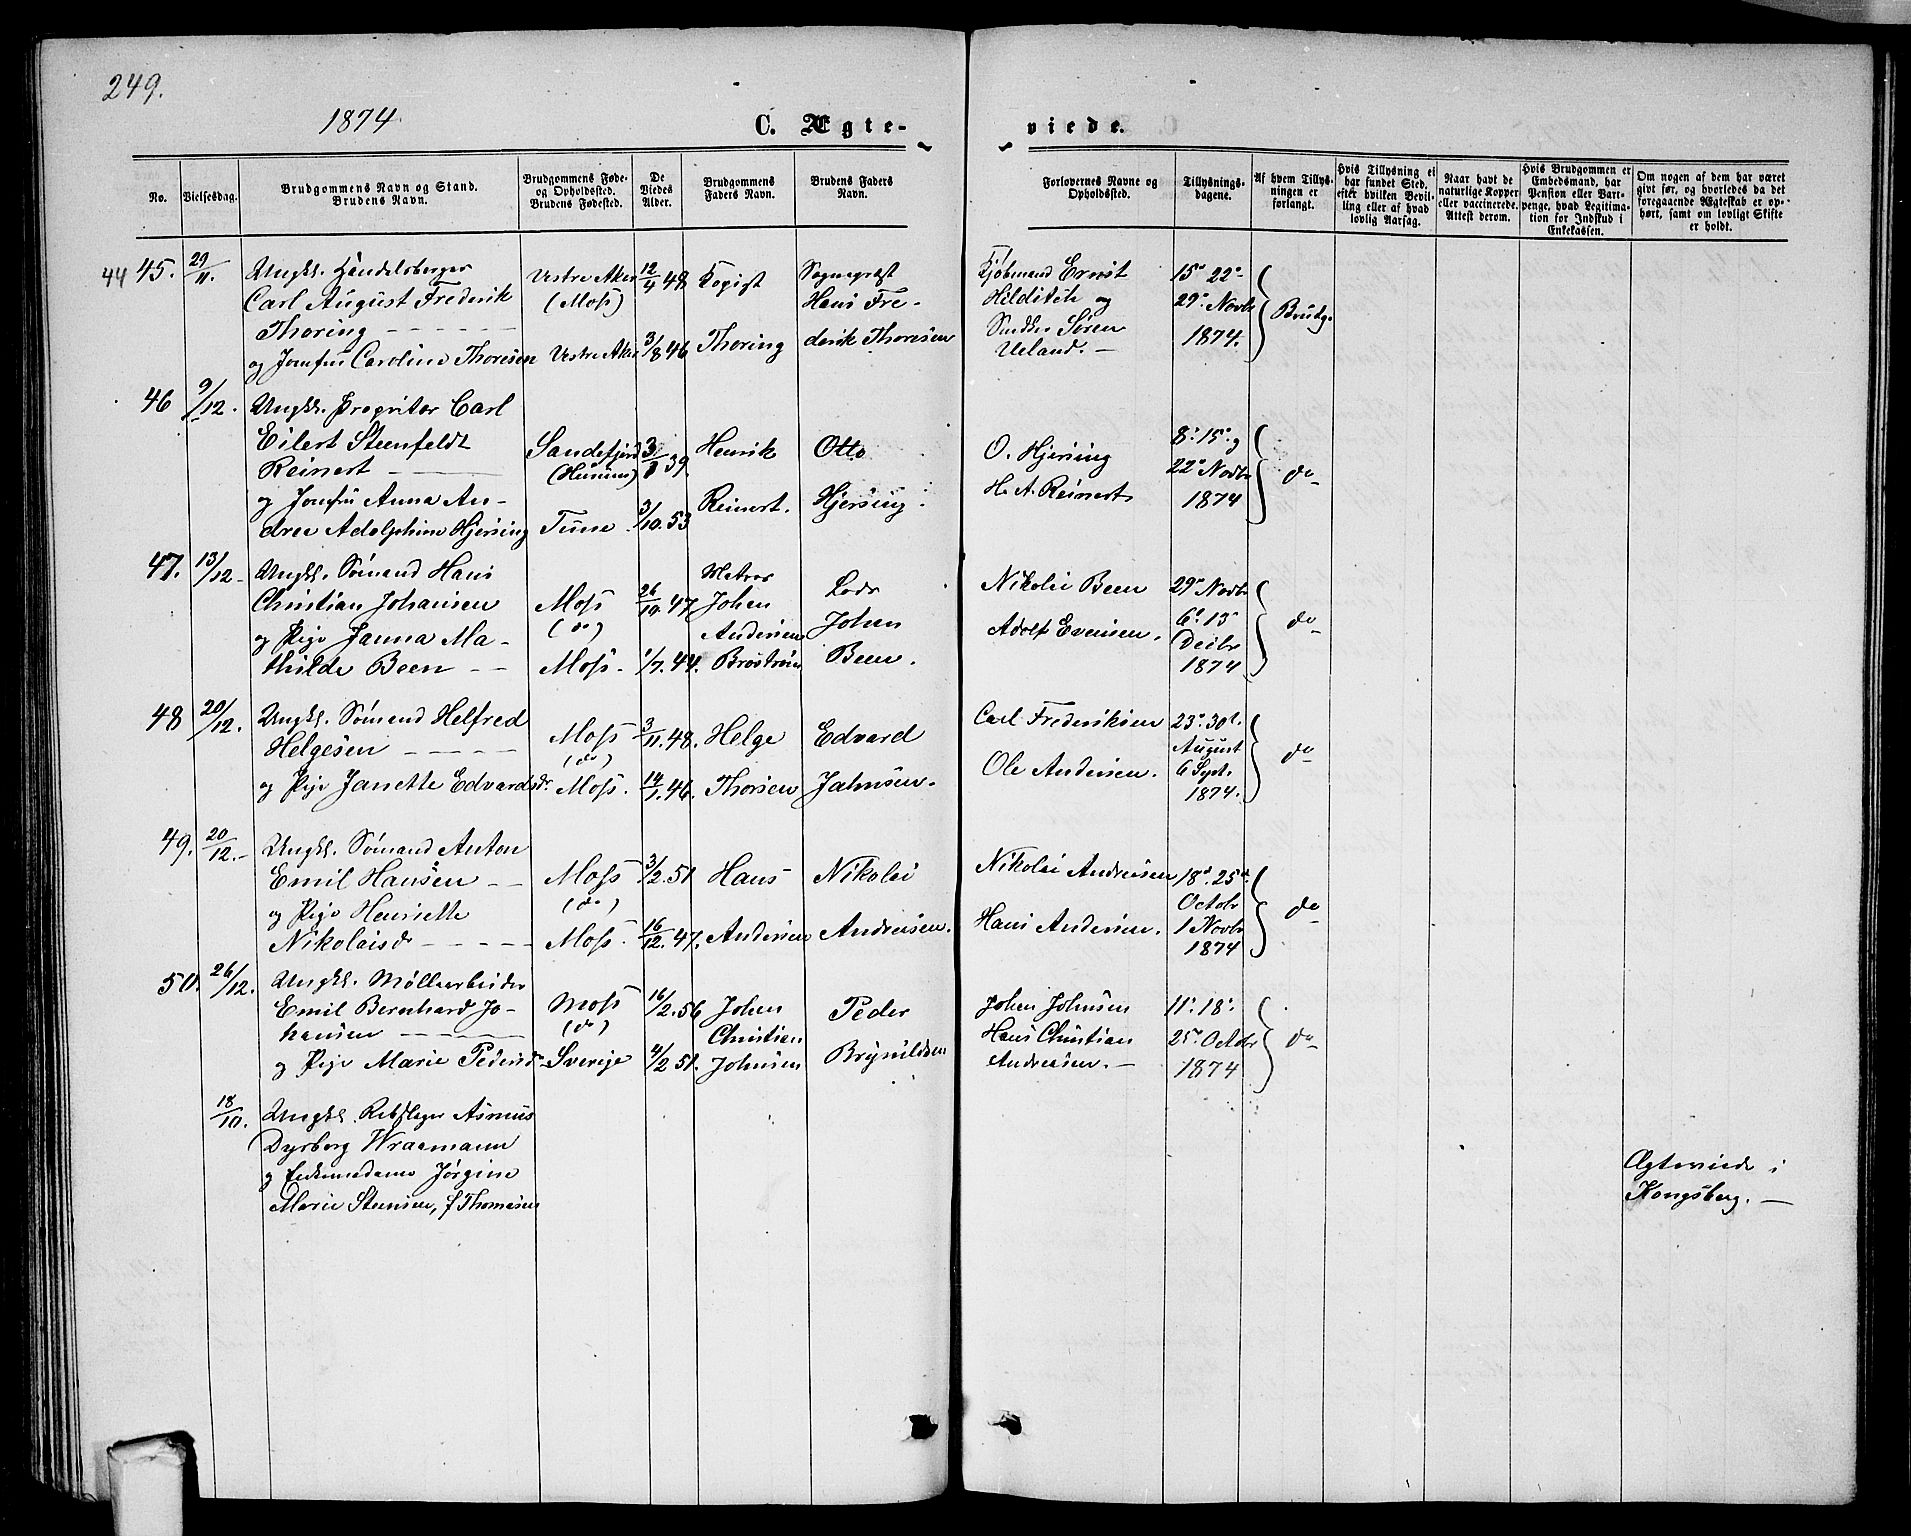 249.
1874
C. Ægte-
viede.
No.
Vielsesdag.
Brudgommens Navn og Stand.
Brudens Navn.
Brudgommens Føde-
og Opholdssted.
Brudens Fødested.
De
Viedes
Alder.
Brudgommens
Faders Navn.
Brudens Faders
Navn.
Forlovernes Navne og
Opholdssted.
Tillysnings-
dagene.
Af hvem Tillys-
ningen er
forlangt.
Hvis Tillysning ei
har fundet Sted,
efter hvilken Bevil-
ling eller af hvad
lovlig Aarsag.
Naar havt de
naturlige Kopper
eller vaccinerede.
Attest derom.
Hvis Brudgommen er
Embedsmand, har
Pension eller Vart-
penge, hvad Legitima-
tion for Indskud i
Enkekassen.
Om nogen af dem har været
gift før, og hvorledes da det
foregaaende Ægteskab er op-
hørt, samt om lovligt Skifte
er holdt.
44 45. 29/11.
Ungkl. Handelsborger
Carl August Frederik
Thoring
og Jomfru Caroline Thoresen
Vestre Aker
(Moss)
Vestre Aker
12/4 48
3/8 46
Kopist
Thoring
Sogneprest
Hans Fre-
derik Thoresen
Kjøbmand Ernst
Hilditch og
Snedker Søren
Ueland.
15de 22de
29de Novbr
1874.
Brudg.
46 9/12.
Ungkl. Propritær Carl
Eilert Steenfeldt
Reinert
og Jomfru Anna An-
drea Adolphine Hjersing
Sandefjord
Tune
3/8 39.
3/10. 53
Henrik
Reinert.
Otto
Hjersing.
O. Hjersing
H. A. Reinert
8de 15de og
22de Novbr
1874
do
47. 13/12
Ungkl. Sømand Hans
Christian Johansen
og Pige Janna Ma-
thilde Been
Moss
(do)
Moss
26/10. 47
1/7. 44.
Matros
Johan
Andersen
Brostrøm
Lods
Johan
Been.
Nikolai Been
Adolf Evensen.
29de Novbr
6te 13de
Decbr
1874
do
48 20/12.
Ungkl. Sømand Helfred
Helgesen
og Pige Janette Edvardsdr
Moss
(do)
Moss.
3/11. 48.
14/1. 46.
Helge
Thorsen
Edvard
Jahnsen.
Carl Frederiksen
Ole Andersen.
23de 30te
August
6 Sept.
1874.
do
49. 20/12.
Ungkl. Sømand Anton
Emil Hansen
og Pige Henriette
Nikolaisdr
Moss
(do)
Moss.
3/2. 51
16/12. 47.
Hans
Andersen
Nikolai
Andreasen.
Nikolai Andreasen
Hans Andersen.
18de 25de
Octobr
1 Novbr
1874
do
50. 26/12.
Ungkl. Møllearbeider
Emil Bernhard Jo-
hansen
og Pige Marie Pedersdr
Moss
(do)
Sverige
16/2. 56
4/2 51.
Johan
Christian
Johnsen
Peder
Brynildsen
Johan Johnsen
Hans Christian
Andreasen.
11te 18de
25de Octobr
1874
do
18/10.
Ungkl. Rebslager Asmus
Dyrborg Wraamann
og Enkemadame Jørgine
Marie Steensen, f Thomesen
Ægteviede i
Kongsberg.